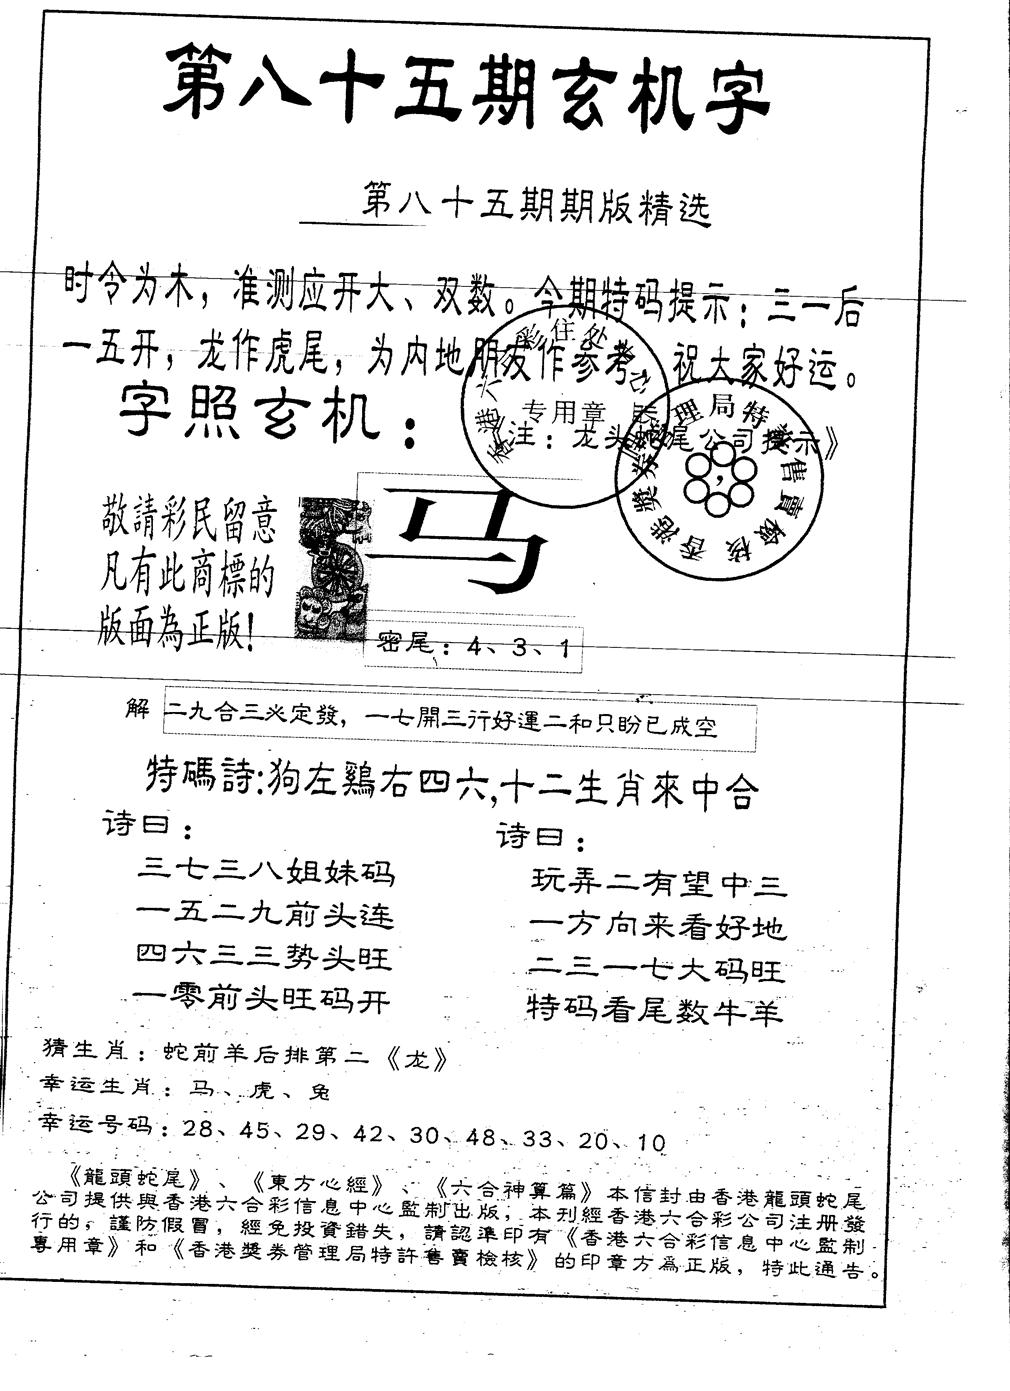 第八十五期玄机字
第八十五期期版精选
时令为木，准测应开大、双数。今期特码提示：三一后
一五开，龙作虎尾，为内地朋友作参考 祝大家好运。
字照玄机：
注：龙头蛇尾公司提示》
专用章
敬請彩民留意
凡有此商標的
版面為正版！
马
密尾：4、3、1
解 二九合三必定發，一七開三行好運二和只盼已成空
特碼詩:狗左鷄右四六,十二生肖來中合
诗曰：
三七三八姐妹码
一五二九前头连
四六三三势头旺
一零前头旺码开
诗曰：
玩弄二有望中三
一方向来看好地
二三一七大码旺
特码看尾数牛羊
猜生肖：蛇前羊后排第二《龙》
幸运生肖：马、虎、兔
幸运号码：28、45、29、42、30、48、33、20、10
《龍頭蛇尾》、《東方心經》、《六合神算篇》本信封由香港龍頭蛇尾
公司提供與香港六合彩信息中心監制出版，本刊經香港六合彩公司注册發
行的，謹防假冒，經免投資錯失，請認準印有《香港六合彩信息中心監制
專用章》和《香港獎券管理局特許售賣檢核》的印章方為正版，特此通告。